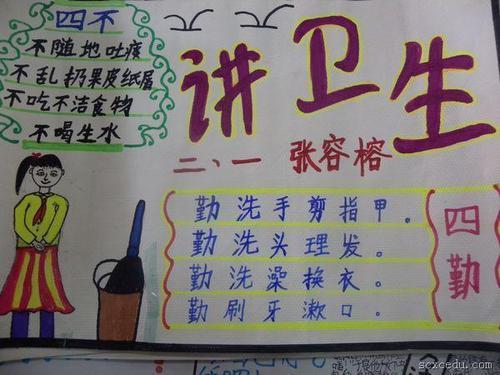 四不
不随地吐痰
不乱扔果皮纸屑
不吃不洁食物
不喝生水
讲卫生
二、一 张容榕
勤洗手剪指甲。
勤洗头理发。
勤洗澡换衣。
勤刷牙漱口。
四勤
gcxcedu.com